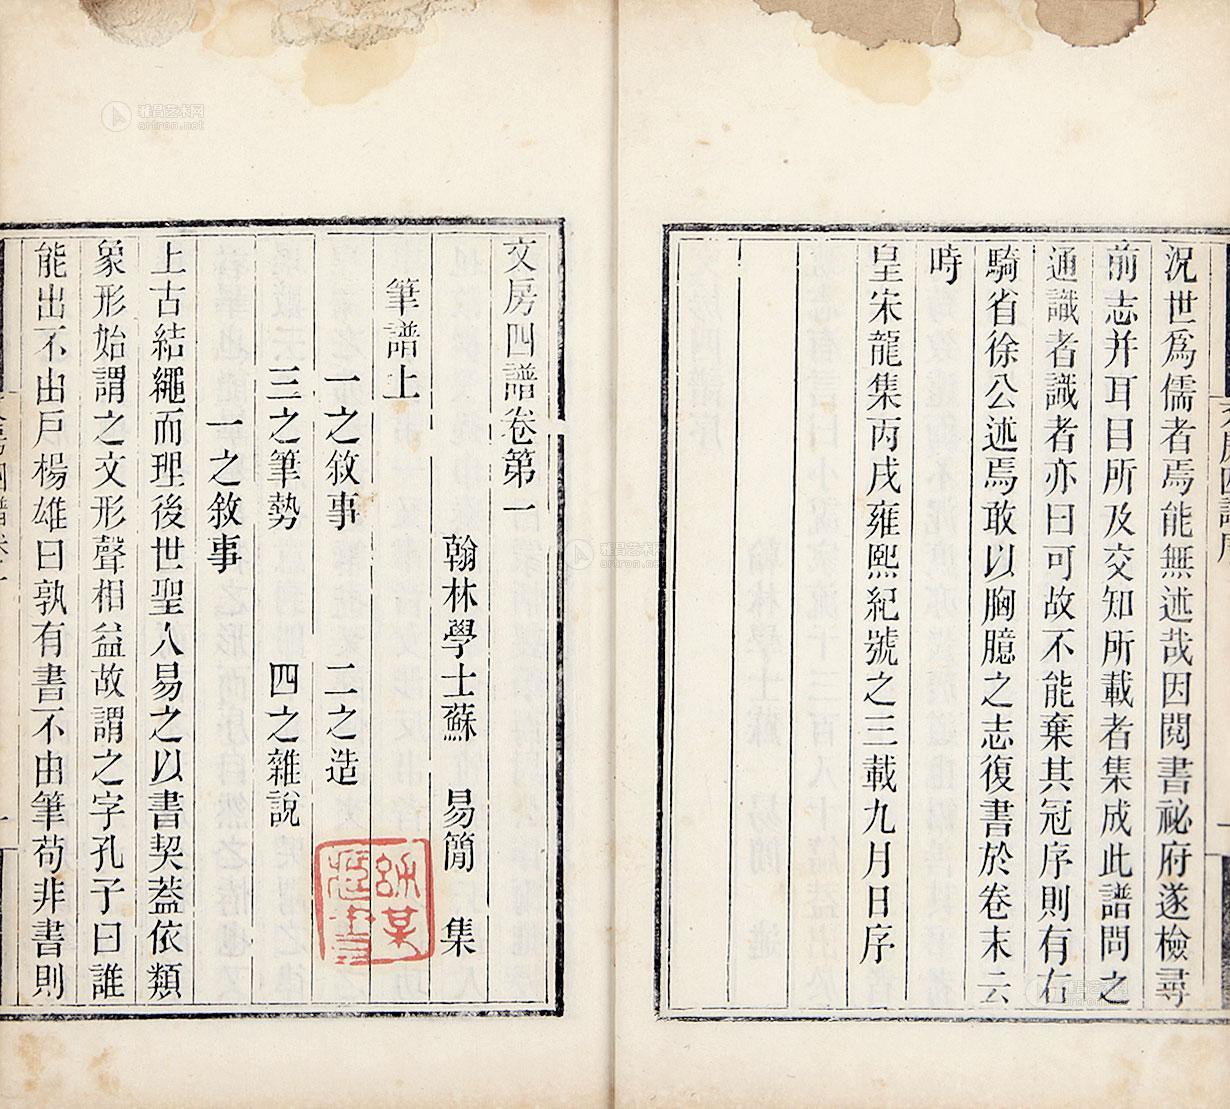 況世爲儒者焉能無述哉因閱書祕府遂檢尋
前志并耳目所及交知所載者集成此譜問之
通識者識者亦曰可故不能棄其冠序則有右
騎省徐公述焉敢以胸臆之志復書於卷末云
時
皇宋龍集丙戌雍熙紀號之三載九月日序
文房四譜卷第一
翰林學士蘇 易簡 集
筆譜上
一之敘事 二之造
三之筆勢 四之雜說
一之敘事
上古結繩而理後世聖人易之以書契蓋依類
象形始謂之文形聲相益故謂之字孔子曰誰
能出不由戶楊雄曰孰有書不由筆苟非書則
雅昌艺术网
artron.net